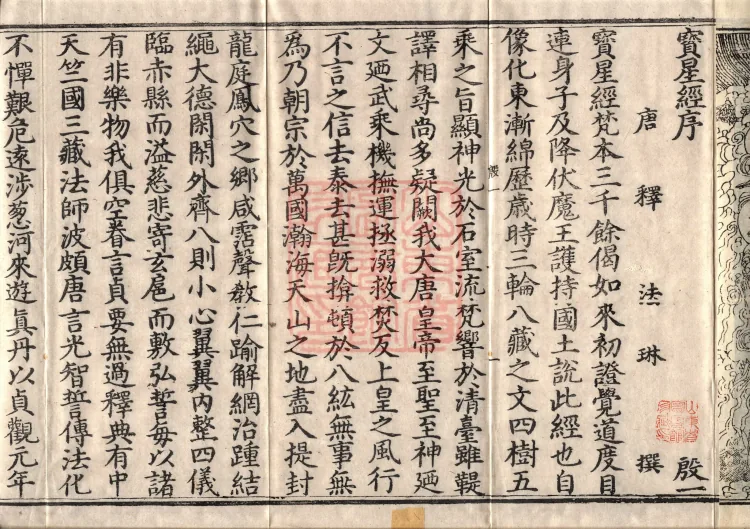 寳星經序
唐釋法琳撰 殷一
寳星經梵本三千餘偈如來初證覺道度目
連身子及降伏魔王護持國土說此經也自
像化東漸綿歷歳時三輪八藏之文四樹五
乘之旨顯神光於石室流梵響於清臺雖鞮
譯相尋尚多疑闕我大唐皇帝至聖至神廼
文廼武乘機撫運拯溺救焚反上皇之風行
不言之信去泰去甚既揜頓於八紘無事無
為乃朝宗於萬國瀚海天山之地盡入提封
龍庭鳳穴之鄉咸霑聲教仁踰解網治踵結
繩大德閑閑外齊八則小心翼翼內整四儀
臨赤縣而溢慈悲寄玄扈而敷弘誓每以諸
有非樂物我俱空眷言貞要無過釋典有中
天竺國三藏法師波頗唐言光智誓傳法化
不憚艱危遠涉葱河來遊真丹以貞觀元年